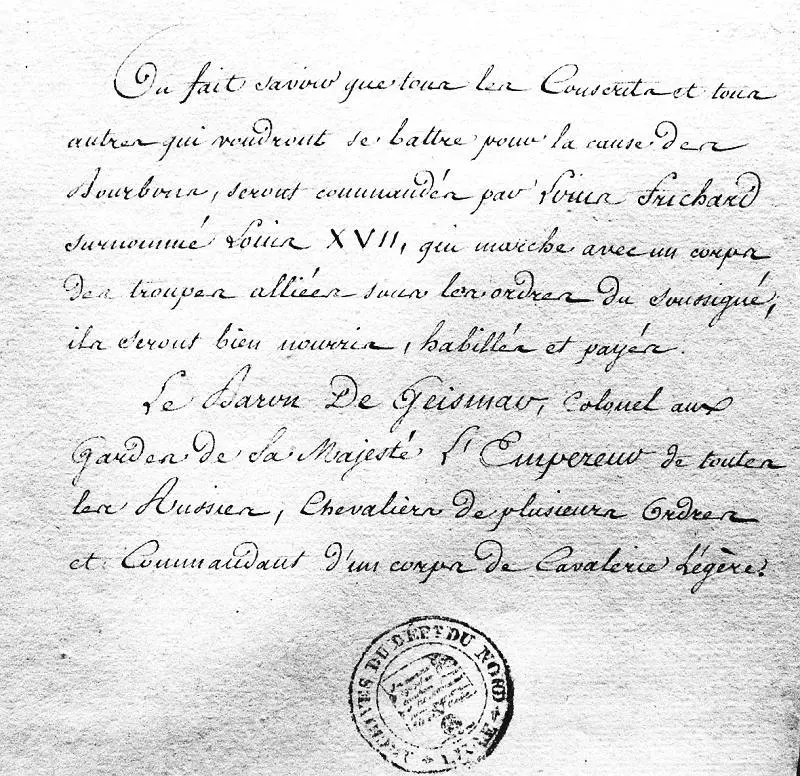 On fait savoir que tous les Conscrits et tous
autres qui voudront se battre pour la cause des
Bourbons, seront commandés par Louis Fruchard
surnommé Louis XVII, qui marche avec un corps
des troupes alliées sous les ordres du soussigné,
ils seront bien nourris, habillés et payés.
Le Baron De Geismar, Colonel aux
Gardes de Sa Majesté L'Empereur de toutes
les Russies, Chevaliers de plusieurs Ordres
et Commandant d'un corps de Cavalerie Légère.
ARCHIVES DU DÉPT DU NORD